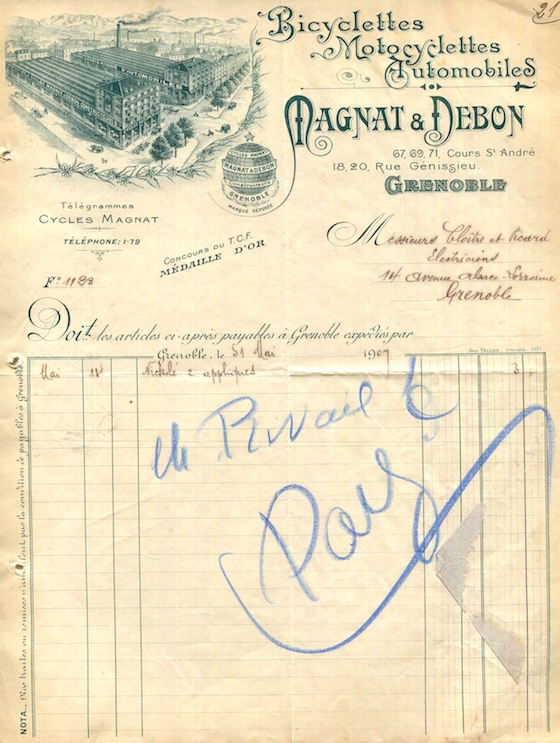 21
Bicyclettes
Motocyclettes
Automobiles
MAGNAT & DEBON
67, 69, 71, Cours St André
18, 20, Rue Génissieu.
GRENOBLE
AUTOMOBILES
CYCLES MAGNAT
MAGNAT & DEBON
GRENOBLE
MARQUE DÉPOSÉE
Télégrammes
CYCLES MAGNAT
TÉLÉPHONE: 1-79
CONCOURS DU T.C.F.
MÉDAILLE D'OR
Messieurs Cloître et Picard
Electriciens
14 avenue Alsace-Lorraine
Grenoble
Fo. 1123
Doit les articles ci-après payables à Grenoble expédiés par
Grenoble, le 31 Mai 1907
Mai 14 Nickelé 2 appliques 3
Payé
NOTA._ Nos traites ou remises n'annulent pas la condition de payables à Grenoble